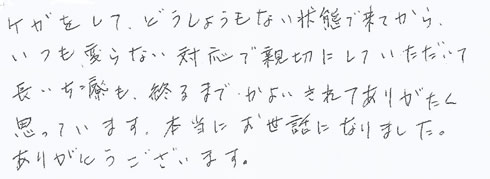 ケガをして、どうしょうもない状態で来てから、
いつも変らない対応で親切にしていただいて
長いち療も、終るまでかよいきれてありがたく
思っています、本当にお世話になりました。
ありがとうございます。